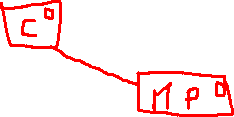 C
M P